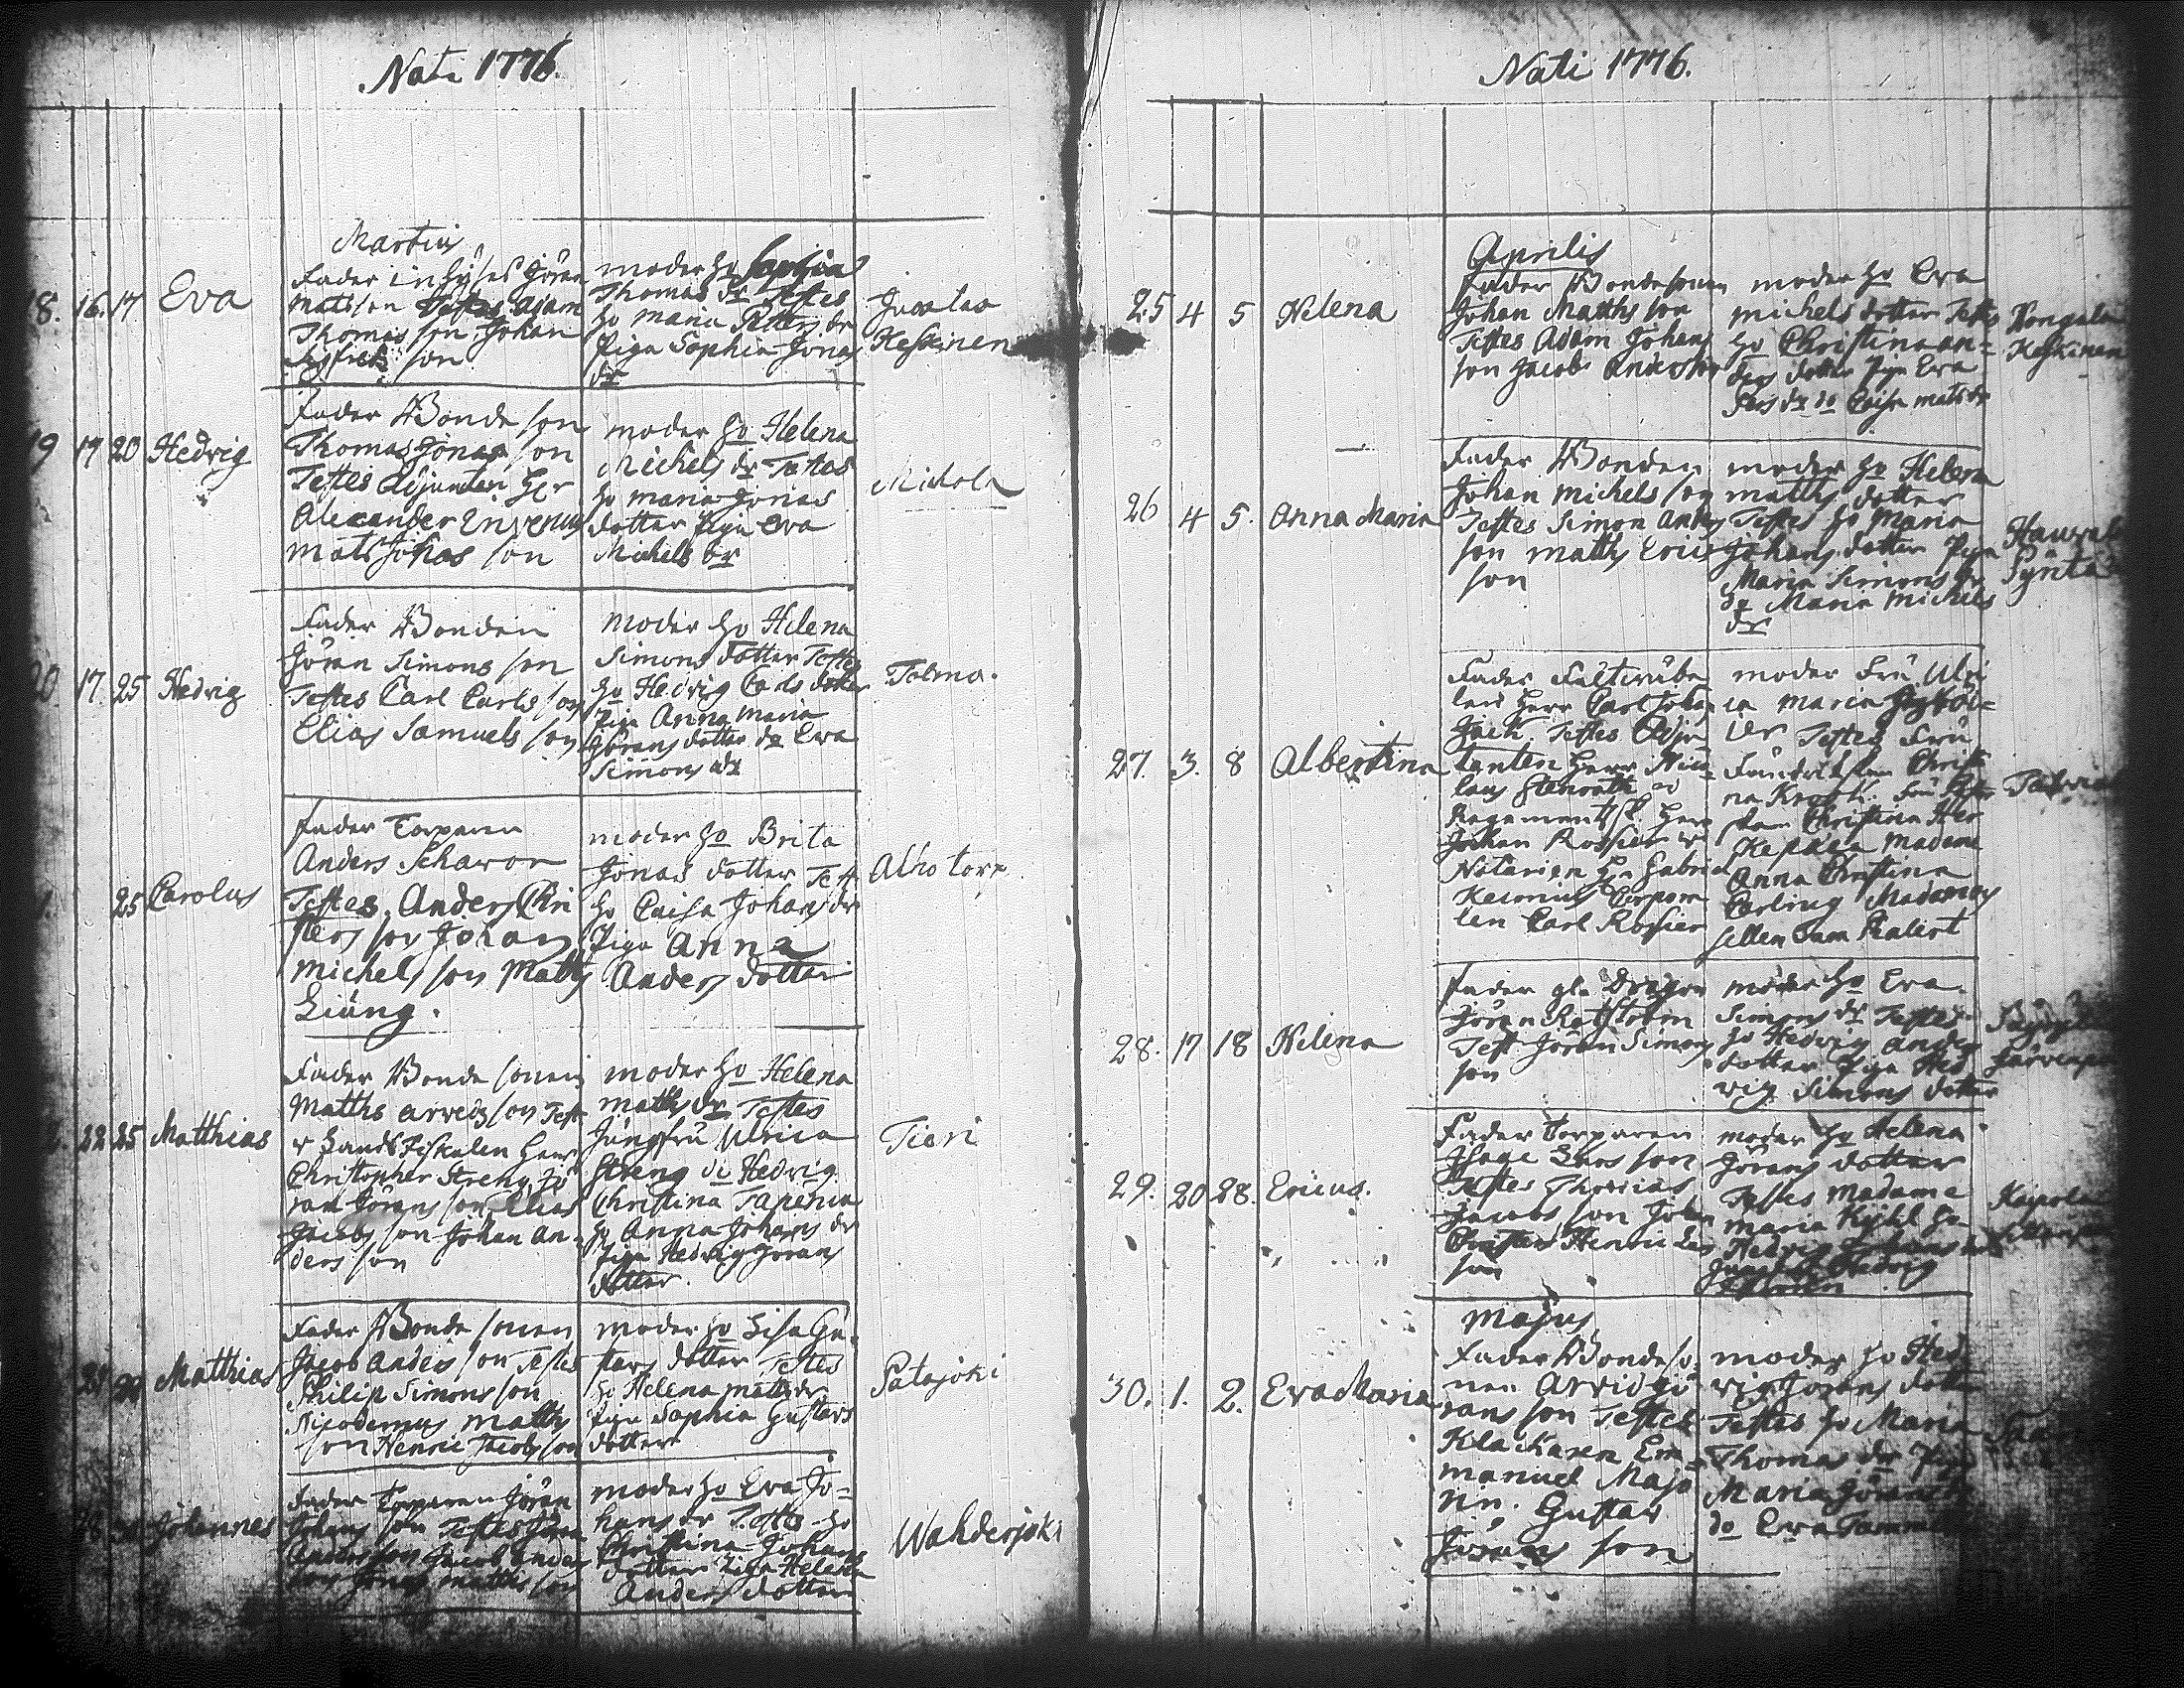 Nati 1776.
Martius
18. 16. 17 Eva
Fader inhyses Jöran
Matsson Testes Adam
Thomas son Johan
Sigfreds son
moder ho Sophia
Thomas dr Testes
ho Maria Petters dr
Piga Sophia Jonas
dr
Juvalas
Keskinen
19 19 20 Hedvig
Fader Bonde son
Thomas Jonas son
Testes Adjuncten Her
Alexander
Mats Jonas son
moder ho Helena
Michels dr Testes
ho Maria Jonas
dotter Piga Eva
Michels dr
Mickola
20 17. 25 Hedvig
Fader Bonden
Jöran Simons son
Testes Carl Carls son
Elias Samuels son
moder ho Helena
Simons dotter Testes
ho Hedvig Carls doter
Piga Anna Maria
Görans dotter do Eva
Simons dr
Tolmo.
25 Carolus
Fader Torparen
Anders Schavon
Testes Anders Chri
sters son Johan
Michels son Matts
Liung.
moder ho Brita
Jonas dotter Test
ho Caisa Johans dr
Piga Anna
Anders dotter
Alho torp
22 25 Matthias
Fader Bonde sonen
Matths Arveds son Test
r Landsfiskalen Herr
Christopher Streng Jö
ran Jörans son Elias
Jacobs son Johan An-
ders son
moder ho Helena
Matts dr Testes
Jungfru Ulrica
Streng do Hedvig
Christina Tapenia
ho Anna Johans dr
Piga Hedvig Jörans
dotter.
Tieri
Matthias
Fader Bonde sonen
Jacob Anders son Testes
Philip Simons son
Nicodemus Matts
son Henric Jacobs son
moder ho Lisa Gu-
stavs dotter Testes
ho Helena Matts dr
Piga Sophia Gustavs
dotter
Patajoki
28 30 Johannes
Fader Torparen Jöran
Johans son Testes Jöran
Anders son Jacob Anders
son Jonas Matts son
moder ho Eva Jo-
hans dr Testes ho
Christina Johans
dotter Piga Helena
Anders dotter
Wahderjoki
Nati 1776.
Aprilis
25 4 5 Helena
Fader Bondesonen
Johan Matths son
Testes Adam Johans
son Jacob Anders son
moder ho Eva
Michels dotter Testes
ho Christina An-
ders dotter Piga Eva
Pers dr do Caisa Mats dr
Kongala
Keskinen
26 4 5. Anna Maria
Fader Bonden
Johan Michels son
Testes Simon Anders
son Matths Erics
son
moder ho Helena
Matths dotter
Testes ho Maria
Johans dotter Piga
Maria Simons dr
do Maria Michels
dr
Hauvala
Pyntä
27. 3. 8 Albertina
Fader Fältwäbe
len Herr Carl Johan
Jack. Testes Adju-
tanten Herr Nico-
laus Stenroth
Regements Herr
Johan Rossier
Notarien Hr Gabriel
Keconius Corpora
len Carl Rossier
moder Fru Ulri
ca Maria
Testes Fru
Christi
na Krook. Fru
Christina Her
Kepæa Madame
Anna Christina
Carling Mademoi
sellen Sam Ralert
28. 17 18 Helena
Fader gla Dragon
Jöran Ratstrom
Test Jöran Simons
son
moder ho Eva
Simons dr Testes
ho Hedvig Anders
dotter Piga Hed
vig Simons dotter
Järvenpä
29. 20 28. Ericus.
Fader Torparen
Isaac Lars son
Testes Thomas
Jacobs son Johan
Christer Henric Lars
son
moder ho Helena
Jörans dotter
Testes Madame
Maria Kihl ho
Hedvig
Jungfru Hedvig
Majus
30. 1. 2. Eva Maria
Fader Bondeso-
nen Arvid Jö
rans son Testes
Klackaren Em-
manuel Majo
rin. Gustav
Jörans son
moder ho Hed
vig Jörans dotter
Testes ho Maria
Thomas dr Piga
Maria Jörans dr
do Eva